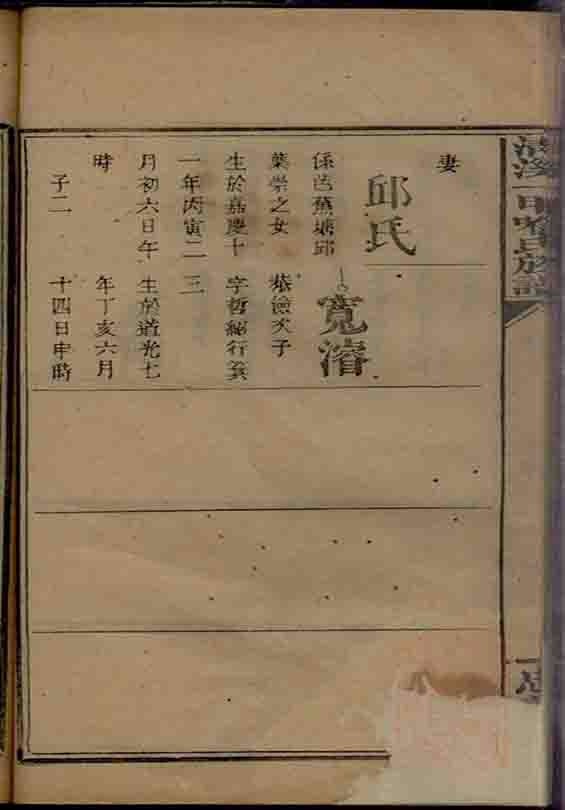 氏族譜
妻
邱氏
係芭蕉塘邱
葉崇之女
生於嘉慶十
一年丙寅二
月初六日午
時
子二
寬濬
恭儉次子
字哲行
三
生於道光七
年丁亥六月
十四日申時